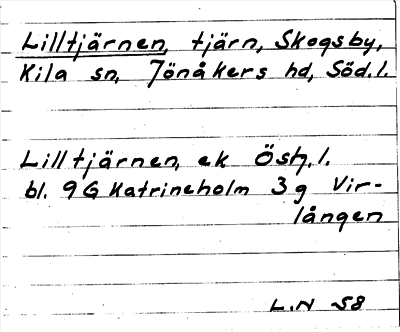 Lilltjärnen, tjärn, Skogsby,
Kila sn, Jönåkers hd, Söd.l.
Lilltjärnen, ek Östg.l.
bl. 9G Katrineholm 3g Vir-
lången
L.N -58